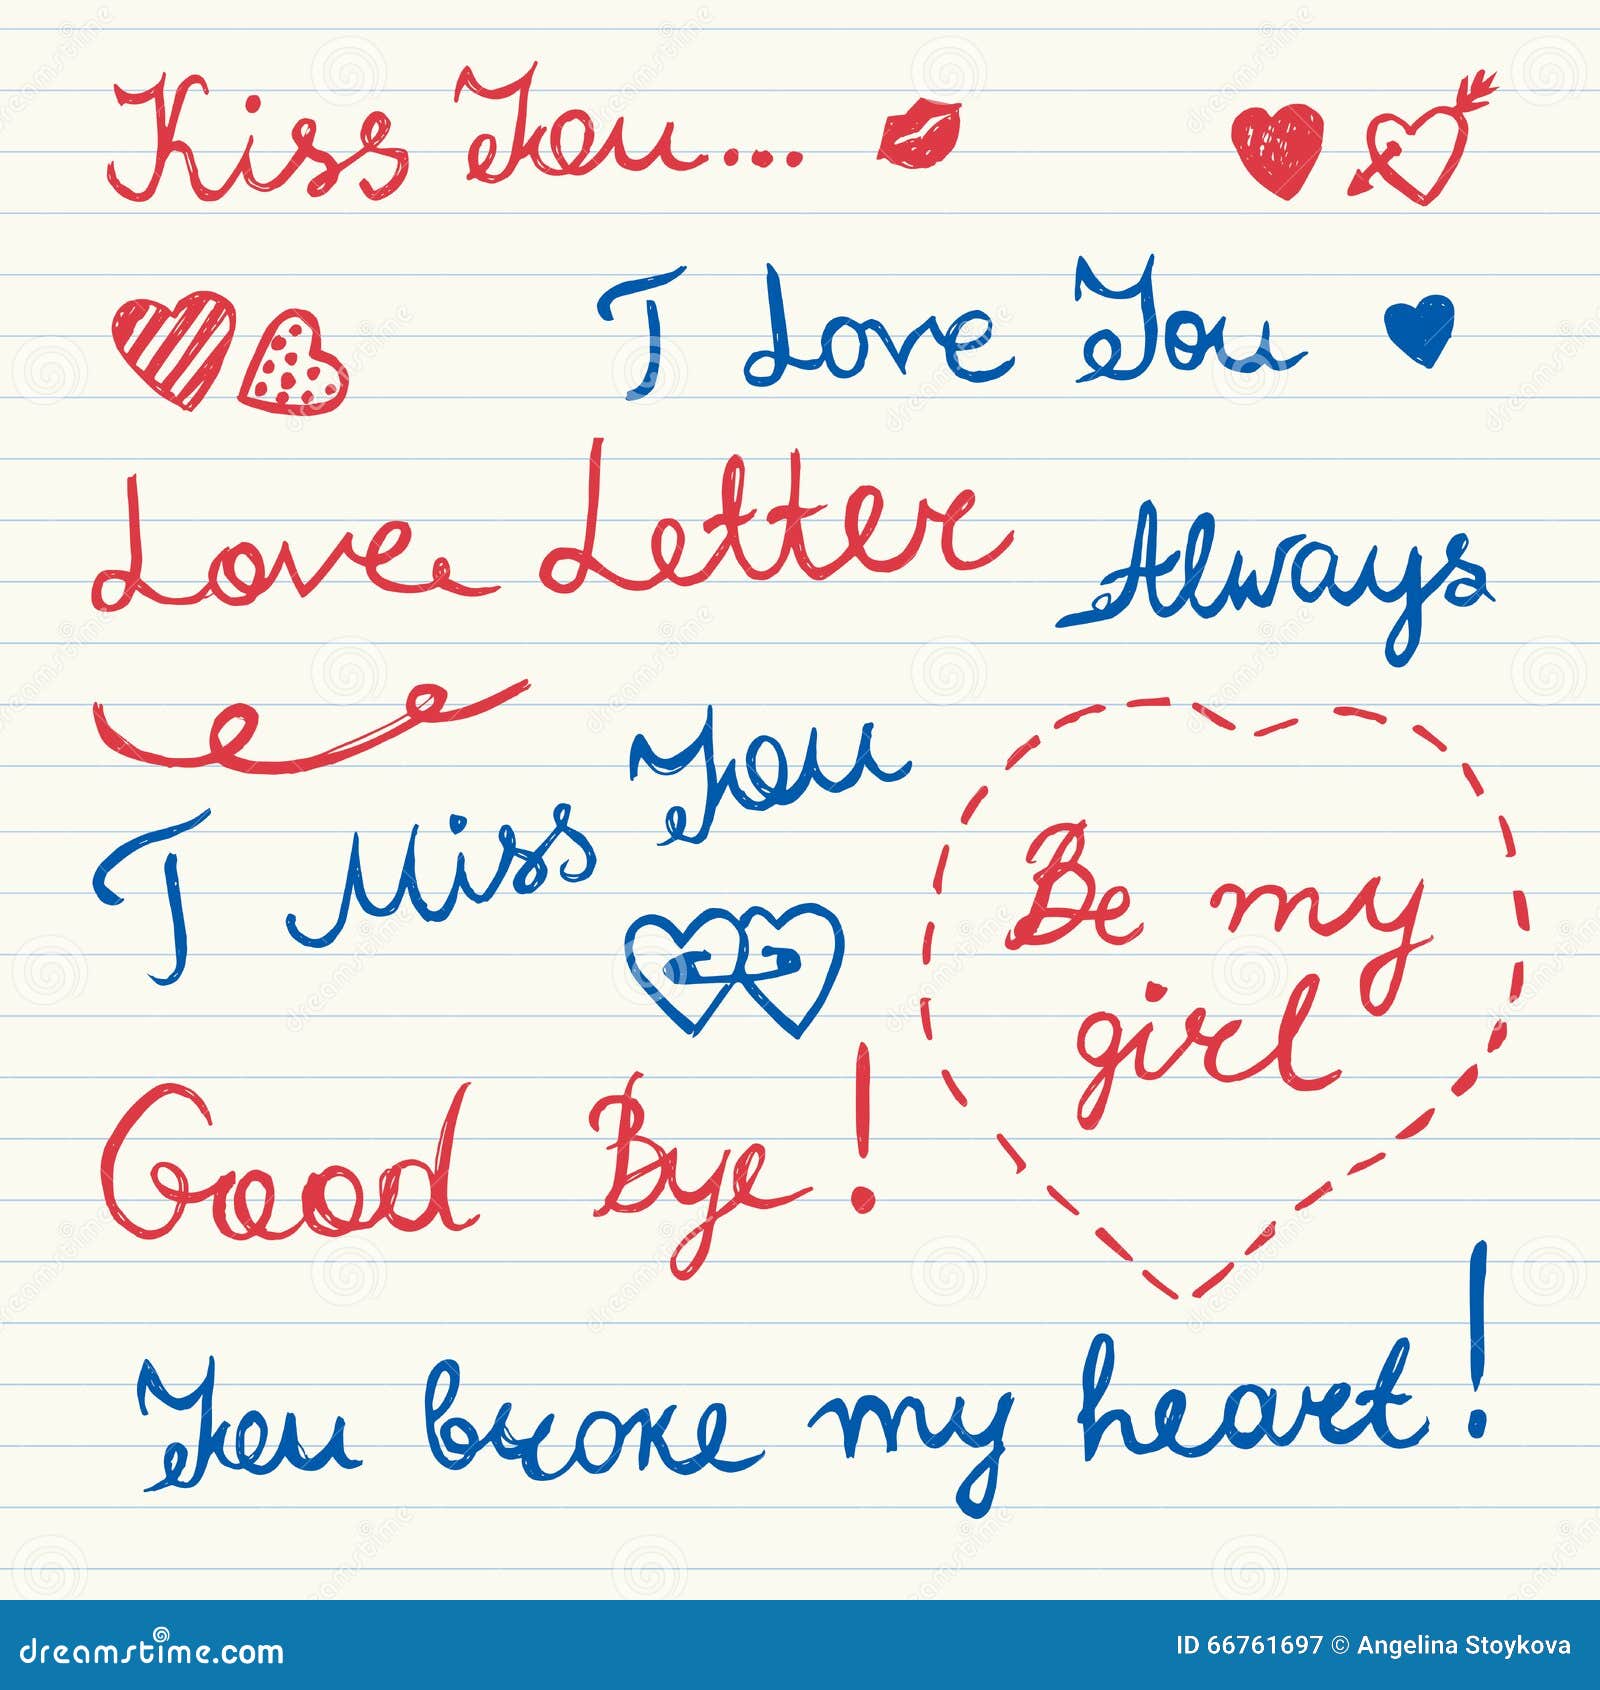 Kiss You...
I Love You
Love Letter
Always
I Miss You
Be my
girl
Good Bye!
You broke my heart!
dreamstime.com
ID 66761697 © Angelina Stoykova